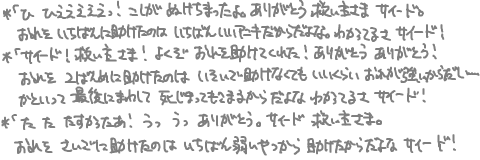 *「ひ ひえええええっ! こしが ぬけちまったよ。ありがとう 救い主さま サイード。
おれを いちばんに助けたのは いちばんしいたキだからだよな。わかってるさ サイード!
*「サイード! 救い主さま! よくぞ おれを助けてくれた! ありがとう ありがとう!
おれを 2ばんめに助けたのは いそいで助けなくても いいくらい おれが強いからだし…
かといって 最後にまわして 死じまってもこまるからだよな わかってるさ サイード!
*「た た たすかったあ! うっ うっ ありがとう。サイード 救い主さま。
おれを さいごに助けたのは いちばん弱いやつから 助けたからだよな サイード!